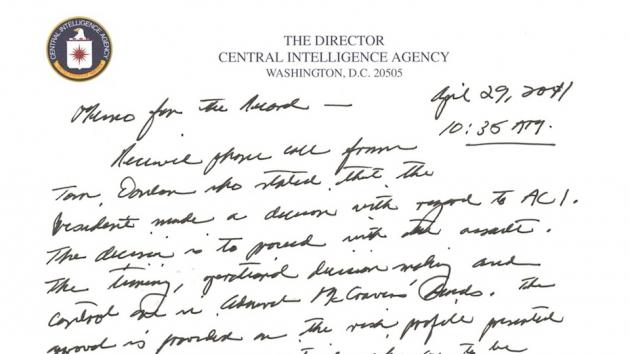 CENTRAL INTELLIGENCE AGENCY
UNITED STATES OF AMERICA
THE DIRECTOR
CENTRAL INTELLIGENCE AGENCY
WASHINGTON, D.C. 20505
Memo for the Record — April 29, 2011
10:35 AM.
Received phone call from
Tom Donilon who stated that the
President made a decision with regard to AC1.
The decision is to proceed with the assault.
The timing, operational decision making and
control are in Admiral McRaven's hands. The
approval is provided on the risk profile presented
to be